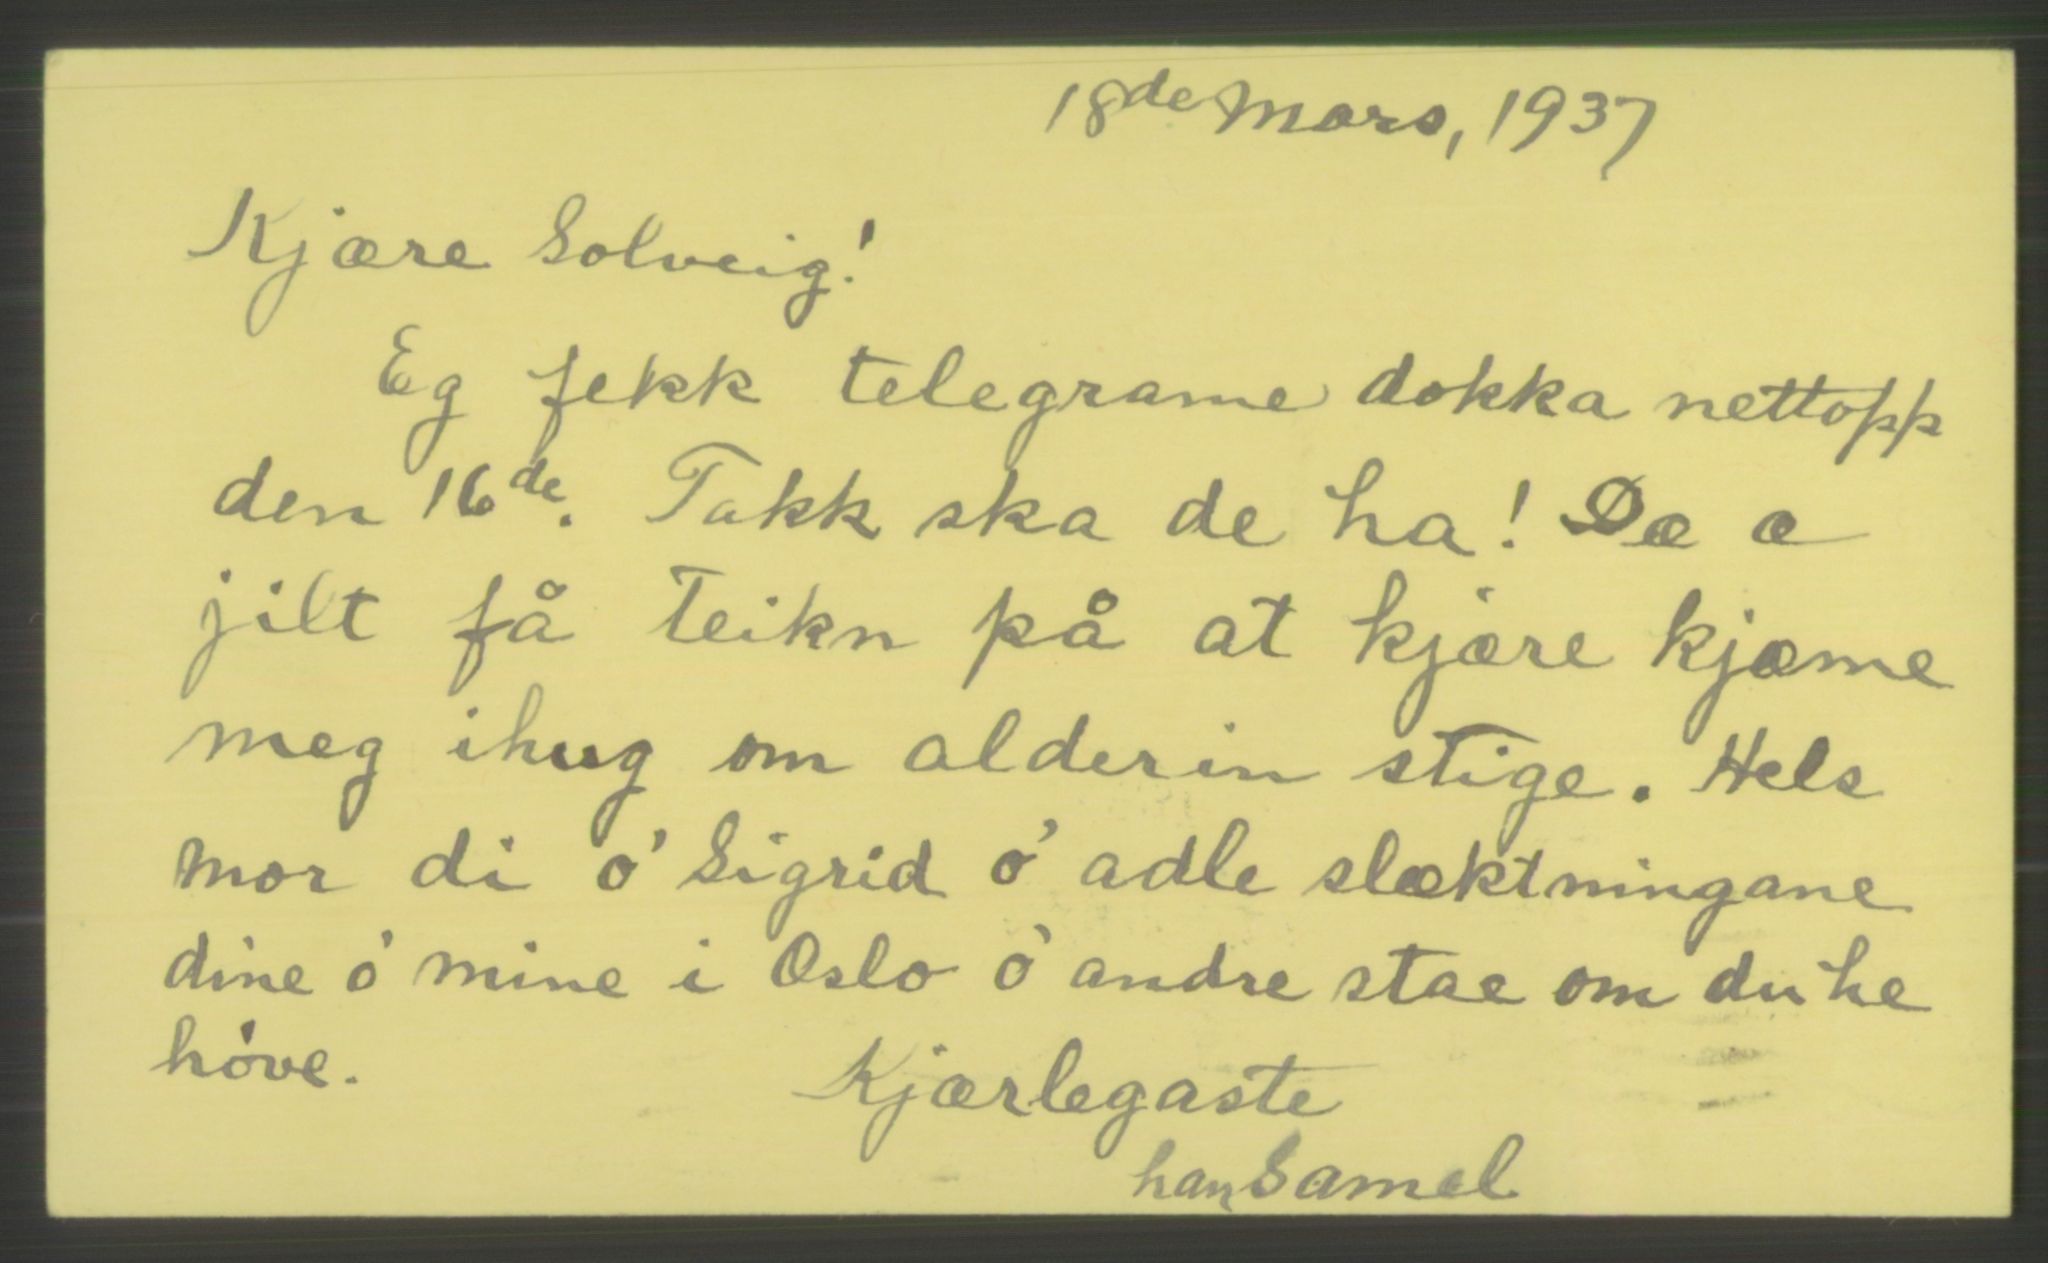 18de Mars, 1937
Kjære Solveig!
Eg fekk telegrame dokka nettopp
den 16de. Takk ska de ha! Dæ æ
jilt få teikn på at kjære kjæme
meg ihug om alderin stige. Hels
mor di ó Sigrid ó adle slæktningane
dine ó mine i Oslo ó andre stae om du he
höve.
Kjærlegaste
han Samel